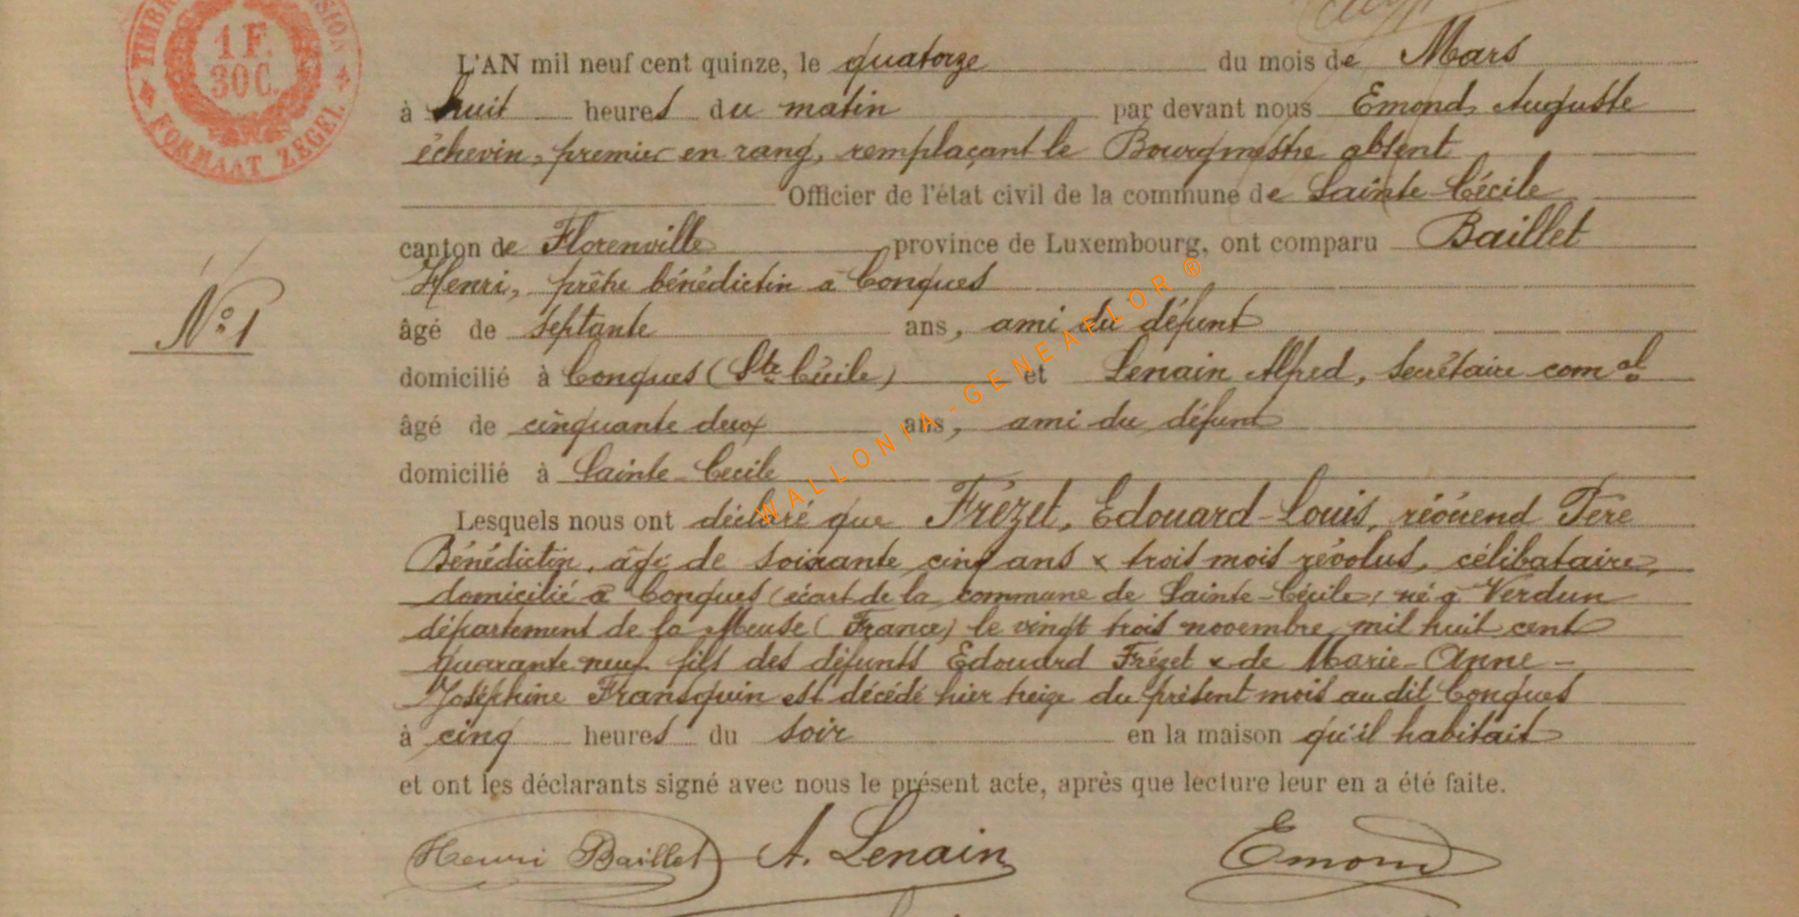 TIMBRE DIMENSION
1 F.
30C.
FORMAAT ZEGEL
L'AN mil neuf cent quinze, le quatorze du mois de Mars
à huit heures du matin par devant nous Emond, Auguste
échevin, premier en rang, remplaçant le Bourgmestre absent
Officier de l'état civil de la commune de Sainte-Cécile
canton de Florenville province de Luxembourg, ont comparu Baillet
Henri, prêtre bénédictin à Conques
N° 1
âgé de septante ans, ami du défunt
domicilié à Conques (Ste Cécile) et Lenain Alfred, secrétaire comal
âgé de cinquante deux ans, ami du défunt
domicilié à Sainte-Cecile
Lesquels nous ont déclaré que Frézet, Edouard-Louis, révérend Père
Bénédictin, âgé de soixante cinq ans & trois mois révolus, célibataire,
domicilié à Conques (écart de la commune de Sainte-Cécile, né à Verdun
département de la Meuse (France) le vingt trois novembre mil huit cent
quarante neuf fils des défunts Edouard Frézet & de Marie-Anne-
Joséphine Fransquin est décédé hier treize du présent mois au dit Conques
à cinq heures du soir en la maison qu'il habitait
et ont les déclarants signé avec nous le présent acte, après que lecture leur en a été faite.
Henri Baillet A. Lenain Emond
WALLONIA-GENEAFLOR ®